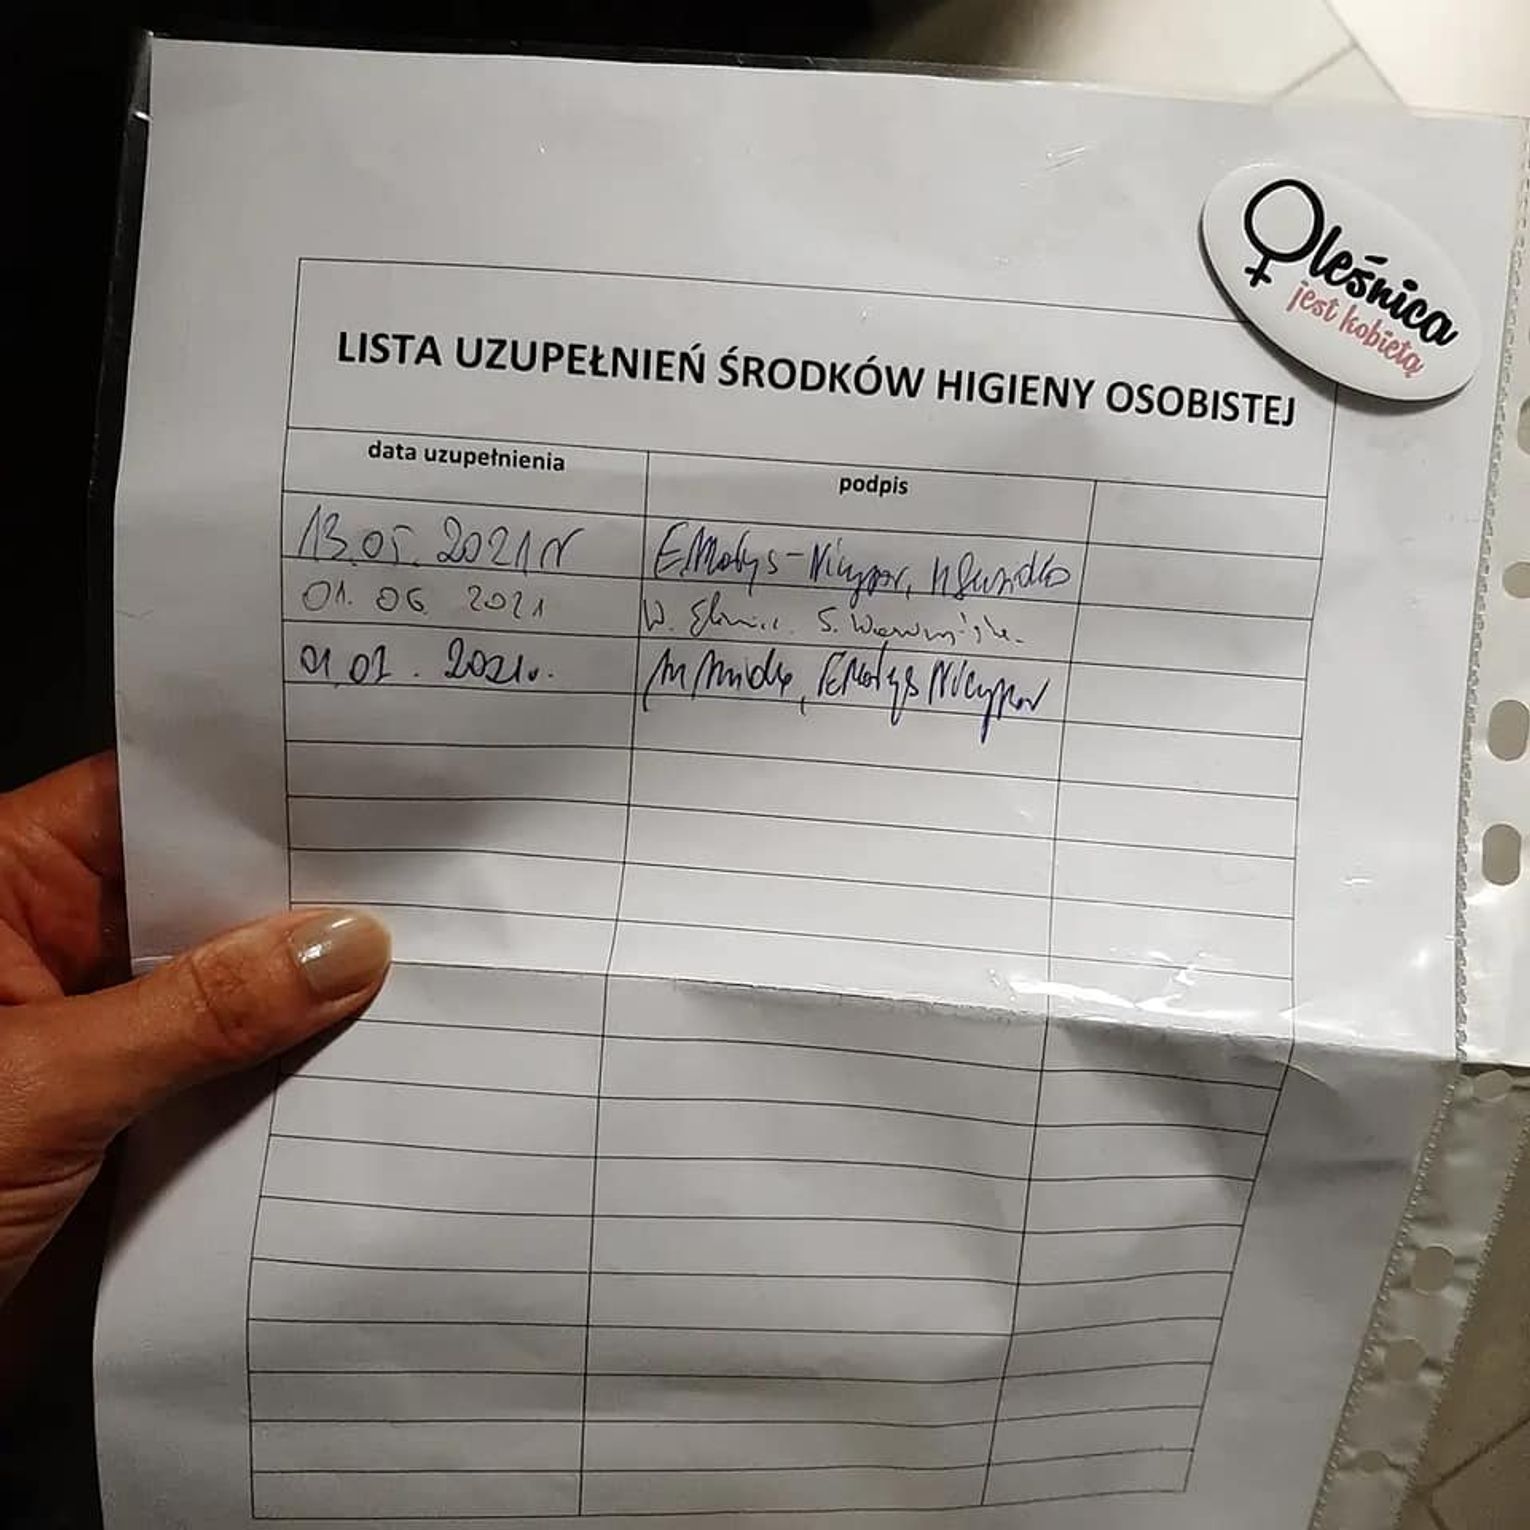 Oleśnica
jest kobietą
LISTA UZUPEŁNIEŃ ŚRODKÓW HIGIENY OSOBISTEJ
data uzupełnienia podpis
13.05.2021r E.Matys-Nicypor,
01.06.2021 W. S.
01.07.2021r. EMatys Nicypor